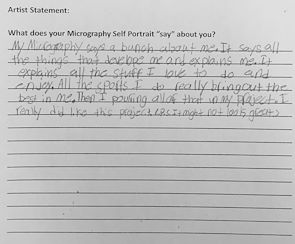 Artist Statement:
What does your Micrography Self Portrait "say" about you?
My Micography says a bunch about me. It says all
the things that develope me and explains me. It
explains all the stuff I love to do and
enjoy. All the sports I do really bring out the
best in me. Then I pouring all of that in my project. I
really did like this project. (P.S it might not look great)